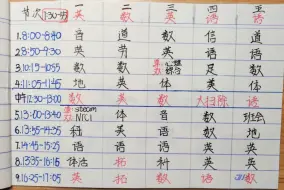 节次 7:30-8:45 一 二 三 四 五
英 数 英 语 语
1.8:00-8:40 音 道 数 信 道
2.8:50-9:30 英 劳 英 语 语
3.10:15-10:55 数 数 足 数
4.11:05-11:45 地 英 体 英 体
12:30-13:00 数 英 数 大扫除 语
5.13:00-13:40 steam 体 音 数 班会
6.13:55-14:35 科 英 语 数 地
7.14:45-15:25 语 语 语 英 英
8.15:35-16:15 体活 拓 科 英 英
9.16:25-17:05 英 拓 数 语 数